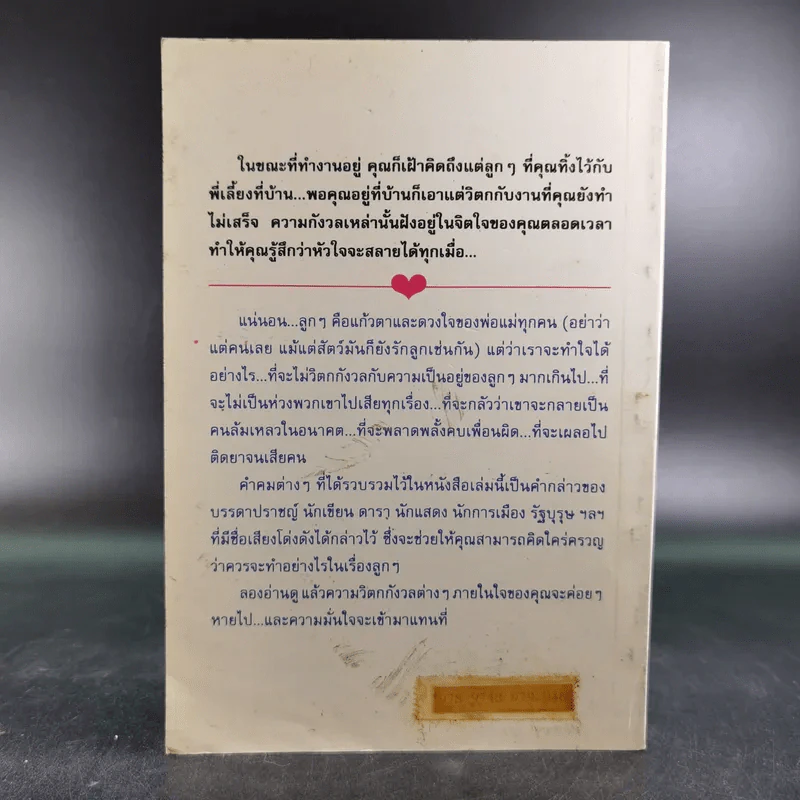 ในขณะที่ทำงานอยู่ คุณก็เฝ้าคิดถึงแต่ลูกๆ ที่คุณทิ้งไว้กับ
พี่เลี้ยงที่บ้าน...พอคุณอยู่ที่บ้านก็เอาแต่วิตกกับงานที่คุณยังทำ
ไม่เสร็จ ความกังวลเหล่านั้นฝังอยู่ในจิตใจของคุณตลอดเวลา
ทำให้คุณรู้สึกว่าหัวใจจะสลายได้ทุกเมื่อ...
แน่นอน...ลูกๆ คือแก้วตาและดวงใจของพ่อแม่ทุกคน (อย่าว่า
แต่คนเลย แม้แต่สัตว์มันก็ยังรักลูกเช่นกัน) แต่ว่าเราจะทำใจได้
อย่างไร...ที่จะไม่วิตกกังวลกับความเป็นอยู่ของลูกๆ มากเกินไป...ที่
จะไม่เป็นห่วงพวกเขาไปเสียทุกเรื่อง...ที่จะกลัวว่าเขาจะกลายเป็น
คนล้มเหลวในอนาคต...ที่จะพลาดพลั้งคบเพื่อนผิด...ที่จะเผลอไป
ติดยาจนเสียคน
คำคมต่างๆ ที่ได้รวบรวมไว้ในหนังสือเล่มนี้เป็นคำกล่าวของ
บรรดาปราชญ์ นักเขียน ดารา นักแสดง นักการเมือง รัฐบุรุษ ฯลฯ
ที่มีชื่อเสียงโด่งดังได้กล่าวไว้ ซึ่งจะช่วยให้คุณสามารถคิดใคร่ครวญ
ว่าควรจะทำอย่างไรในเรื่องลูกๆ
ลองอ่านดู แล้วความวิตกกังวลต่างๆ ภายในใจของคุณจะค่อยๆ
หายไป...และความมั่นใจจะเข้ามาแทนที่